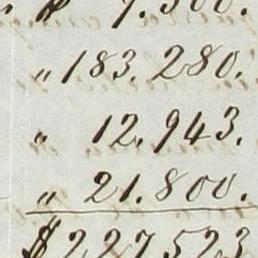 $ 9.500.
" 183.280.
" 12.943.
" 21.800.
$227.523